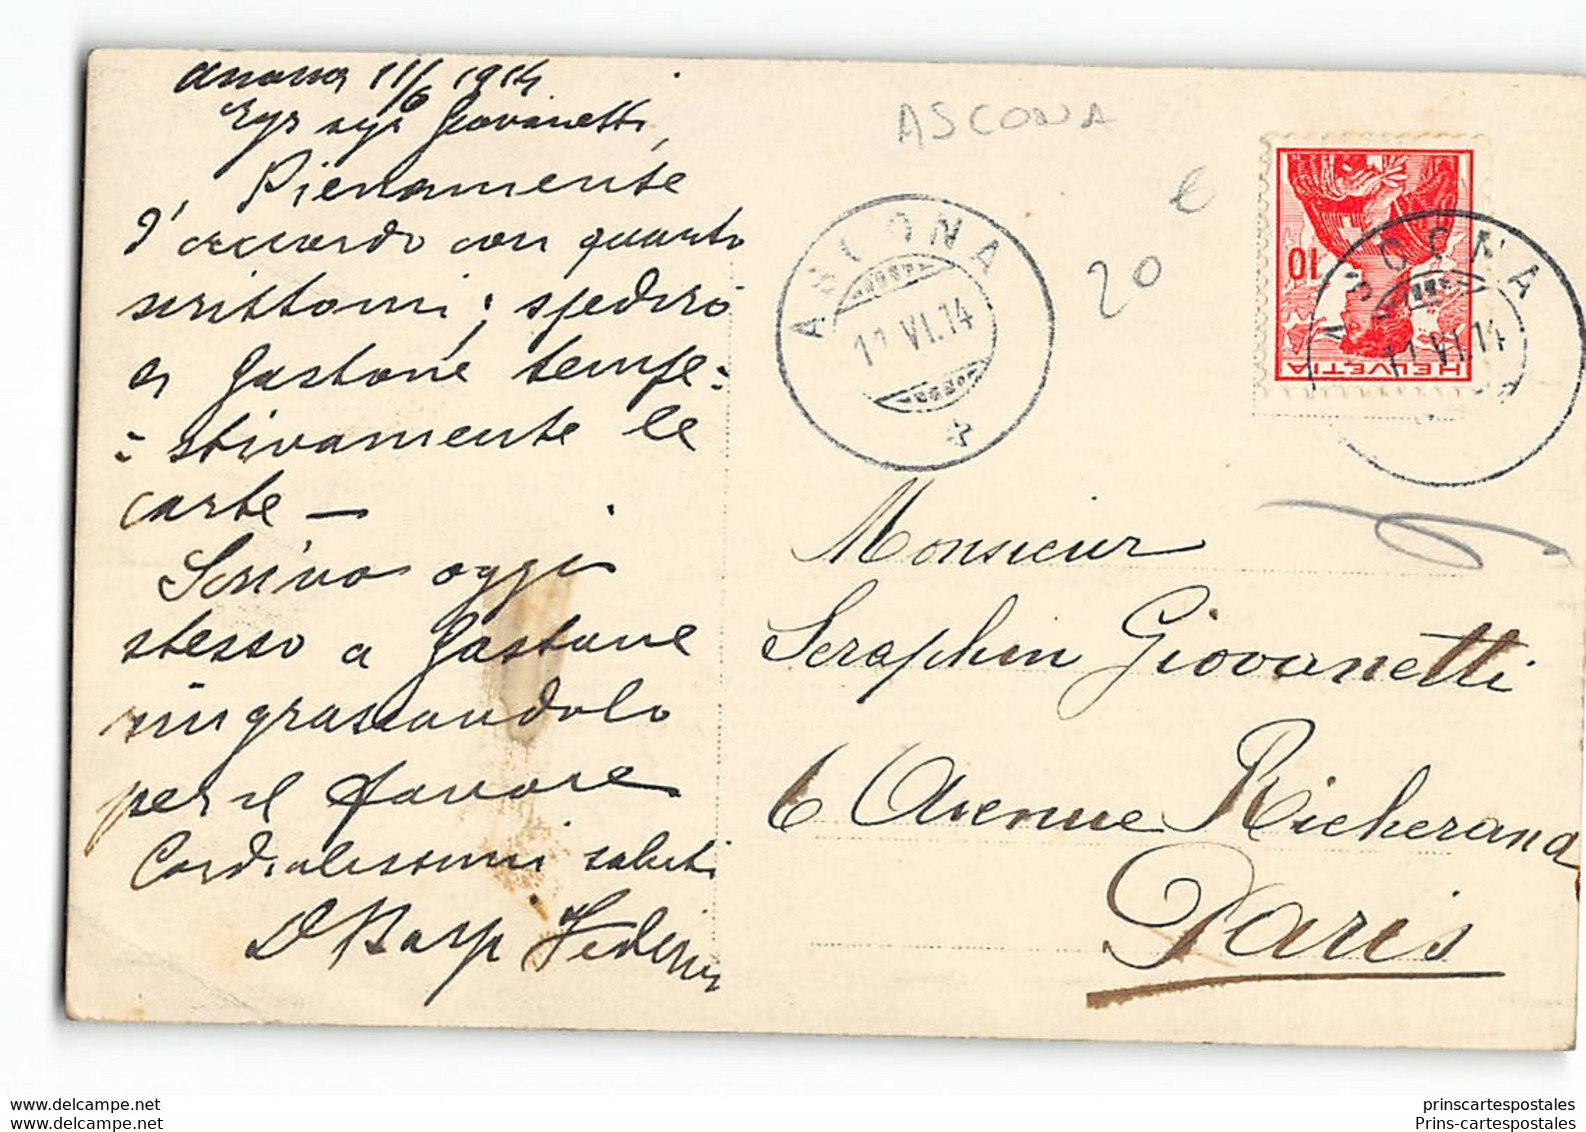 Ascona 11/6 1914
Egr sigr Giovanetti,
Pienamente
d'accordo con quanto
scrittomi; spedirò
a Gastone tempe=
=stivamente le
carte —
Scrivo oggi
stesso a Gastone
ringraziandolo
per il favore
Cordialissimi saluti
ASCONA
20 €
ASCONA
11.VI.14
HELVETIA
10
ASCONA
11.VI.14
Monsieur
Seraphin Giovanetti
6 Avenue Richerand
Paris
www.delcampe.net
prinscartespostales
prinscartespostales
Prins-cartespostales.com